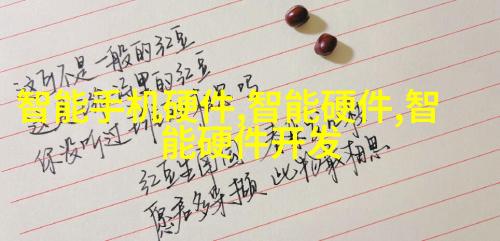 这可不是一般的红豆
里的红豆
你没听过 吗
智能手机硬件,智能硬件,智
能硬件开发
红豆生南国
愿君多采撷 此物最相思